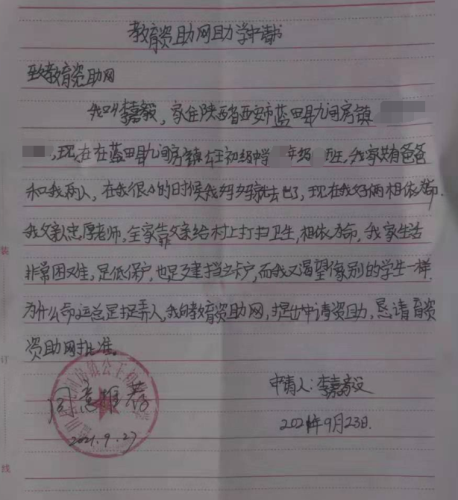 教育资助网助学申请书
致教育资助网
我叫李嘉毅,家住陕西省西安市蓝田县九间房镇
,现在在蓝田县九间房镇 初级中 年级 班,我家有爸爸
和我两人,在我很小的时候我妈妈就去世了,现在我父俩相依为命.
我父亲忠厚老师,全家靠父亲给村上打扫卫生,相依为命,我家生活
非常困难,是低保户,也是建档立卡户,而我又渴望像别的学生一样
为什么命运总是捉弄人,我向教育资助网,提出申请资助,恳请育资
资助网批准。
申请人:李嘉毅
2021年9月23日.
同意
2021.9.27
装
订
线